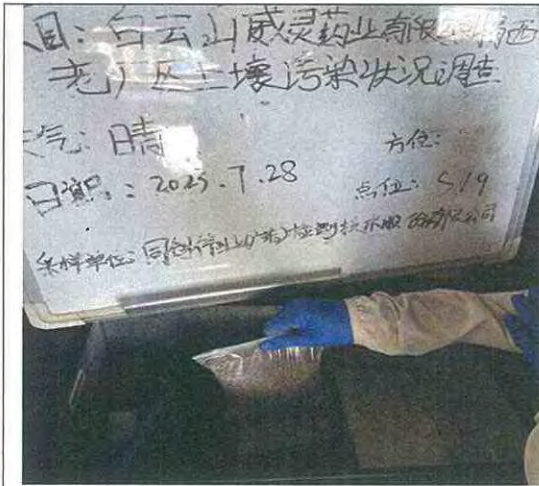 目：白云山威灵药业有限 西
老厂区土壤污染状况调查
气：晴
方位：
日期：2025.7.28
点位：S19
采样单位：同创 检测技术服 有限公司